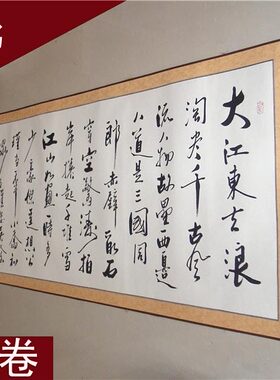 大江東去浪
淘尽千古風
流人物故壘西邊
人道是三國周
郎赤壁亂石
穿空驚濤拍
岸捲起千堆雪
江山如畫一時多
少豪傑遙想公
瑾當年小喬初
卷